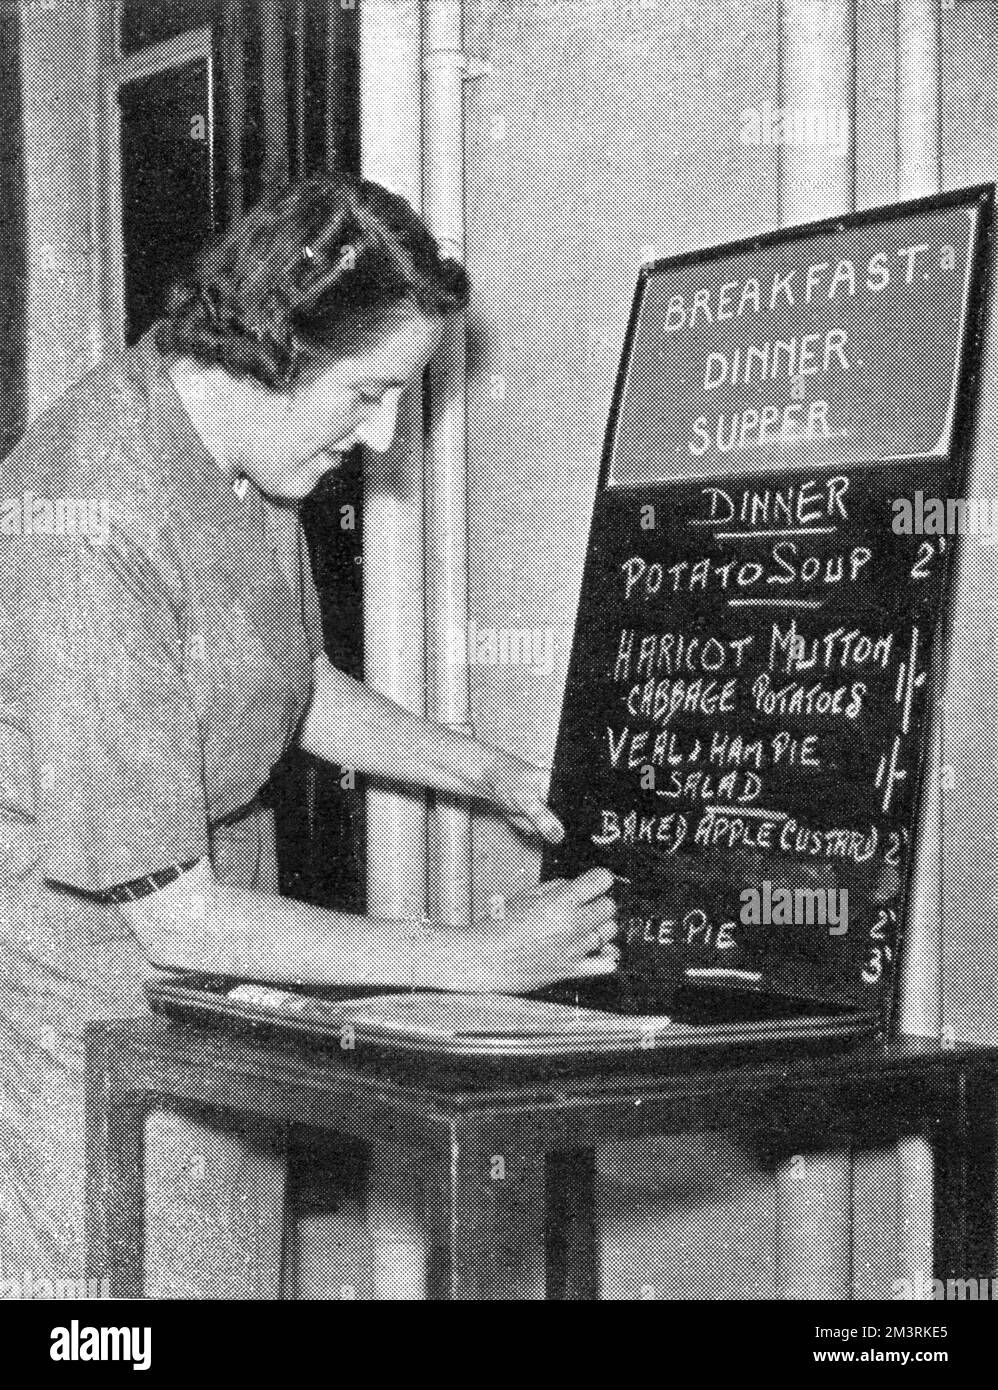 BREAKFAST.
DINNER.
SUPPER
DINNER
POTATO SOUP 2'
HARICOT MUTTON
CABBAGE POTATOES 1/-
VEAL & HAM PIE
SALAD 1/-
BAKED APPLE CUSTARD 2'
PLE PIE 2'
3'
alamy
Image ID: 2M3RKE5
www.alamy.com